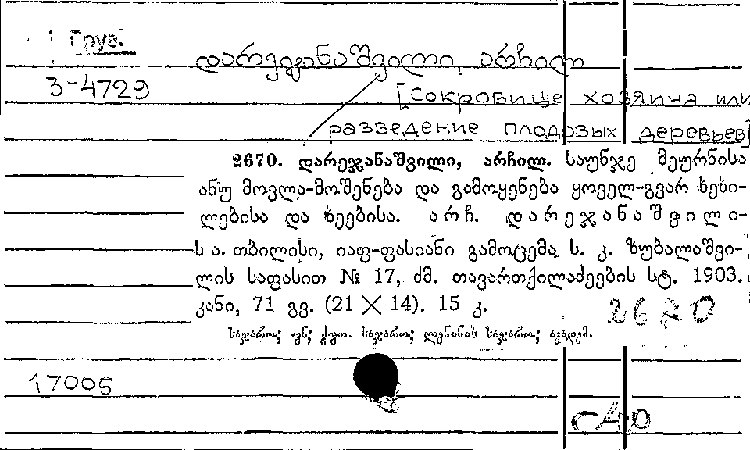 Груз.
დარეჯანაშვილი, არჩილ
3-4729
[Сокровище хозяина или
разведение плодовых деревьев]
2670. დარეჯანაშვილი, არჩილ. საუნჯე მეურნისა
ანუ მოვლა-მოშენება და გამოყენება ყოველ-გვარ ხეხი-
ლებისა და ხეებისა. არჩ. დარეჯანაშვილი-
ს ა. თბილისი, იაფ-ფასიანი გამოცემა ს. კ. ზუბალაშვი-
ლის საფასით № 17, ძმ. თავართქილაძეების სტ. 1903.
კანი, 71 გვ. (21 × 14). 15 კ.
2670
17005